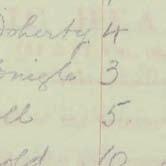 Doherty 4
onigle 3
ll 5
old 10